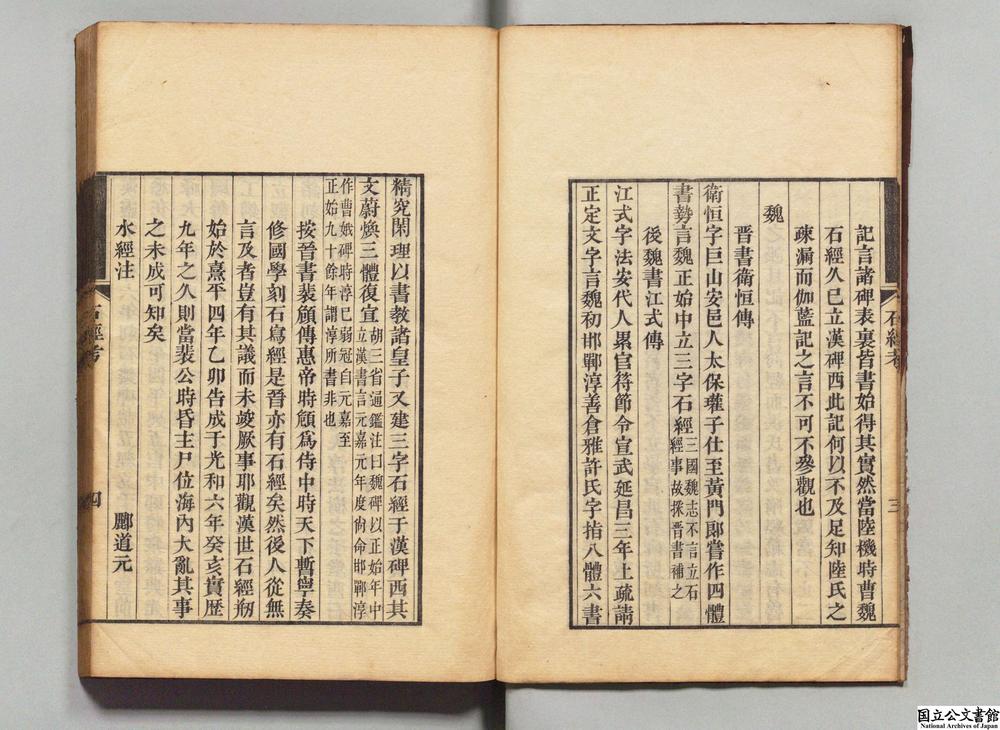 記言諸碑表裏皆書始得其實然當陸機時曹魏
石經久已立漢碑西此記何以不及足知陸氏之
疎漏而伽藍記之言不可不參觀也
魏
晉書衛恒傳
衛恒字巨山安邑人太保瓘子仕至黃門郞嘗作四體
書勢言魏正始中立三字石經三國魏志不言立石經事故採晉書補之
後魏書江式傳
江式字法安代人累官符節令宣武延昌三年上疏請
正定文字言魏初邯鄲淳善倉雅許氏字指八體六書
石經考
三
精究閑理以書教諸皇子又建三字石經于漢碑西其
文蔚煥三體復宣胡三省通鑑注曰魏碑以正始年中立漢書言元嘉元年度尙命邯鄲淳
作曹娥碑時淳已弱冠自元嘉至正始九十餘年謂淳所書非也
按晉書裴頠傳惠帝時頠爲侍中時天下暫寧奏
修國學刻石寫經是晉亦有石經矣然後人從無
言及者豈有其議而未竣厥事耶觀漢世石經刱
始於熹平四年乙卯告成于光和六年癸亥實歴
九年之久則當裴公時昏主尸位海內大亂其事
之未成可知矣
水經注 酈道元
石經考
四
国立公文書館
National Archives of Japan